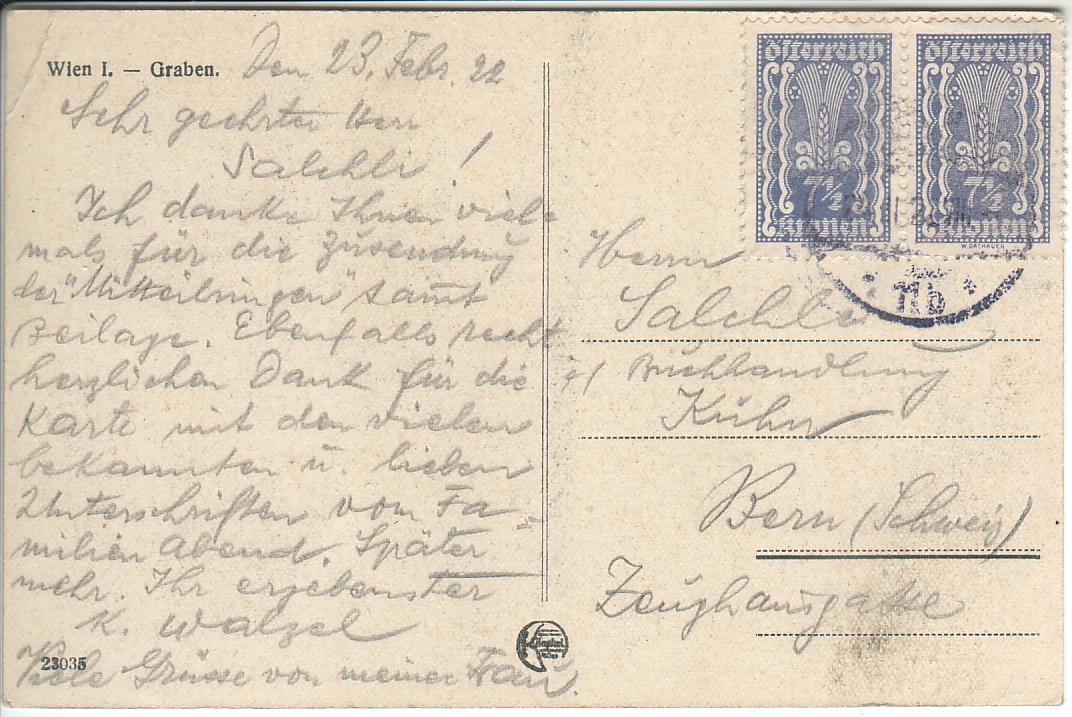 Wien I. — Graben.
Den 23. Febr. 22
Sehr geehrter Herr
Salchli!
Ich danke Ihnen viele
mals für die Zusendung
der "Mitteilungen" samt
Beilage. Ebenfalls recht
herzlichen Dank für die
Karte mit den vielen
bekannten u. lieben
Unterschriften vom Fa-
milien Abend. Später
mehr. Ihr ergebenster
K. Walzel
Viele Grüsse von meiner Frau.
23035
Österreich
7½
Kronen
W. DACHAUER
Österreich
7½
Kronen
W. DACHAUER
11b
Herrn
Salchli
Buchhandlung
Kühn
Bern (Schweiz)
Zeughausgasse